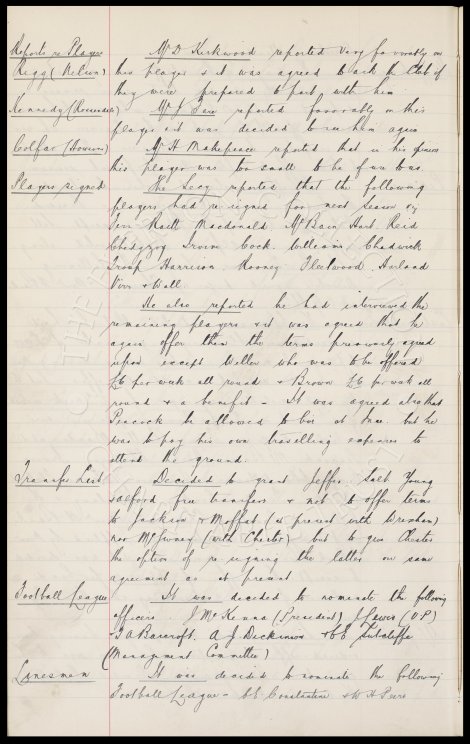 Reports re Players Mr D. Kirkwood reported very favorably on
Rigg (Nelson) his player & it was agreed to ask the Club if
they were prepared to part with him
Kennedy (Rossendale) Mr J. Fare reported favorably on this
player & it was decided to see him again
Colfar (Howson) Mr H Makepeace reported that in his opinion
this player was too small to be of use to us.
Players signed The Secy reported that the following
players had re-signed for next season viz
Fern Raitt Macdonald McBain Hart Reid
Chedgzoy Irvine Cock Williams Chadwick
Troup Harrison Rooney Fleetwood Harland
Virr & Wall.
He also reported he had interviewed the
remaining players & it was agreed that he
again offer them the terms previously agreed
upon except Weller who was to be offered
£6 per week all round & Brown £6 per week all
round & a benefit - It was agreed also that
Peacock be allowed to live at but he
was to pay his own travelling expenses to
attend the ground.
Transfer List Decided to grant Jeffs Salt Young
& Salford free transfers & not to offer terms
to Jackson & Moffat (at present with Wrexham)
nor (with Chester) but to give Chester
the option of re-signing the latter on same
agreement as at present
Football League It was decided to nominate the following
officers. J McKenna (President) J Lewis (V.P)
T A Barcroft. A J Dickinson & C E Sutcliffe
(Management Committee)
Linesmen It was decided to nominate the following
Football League - C E Constantine & W H Peers